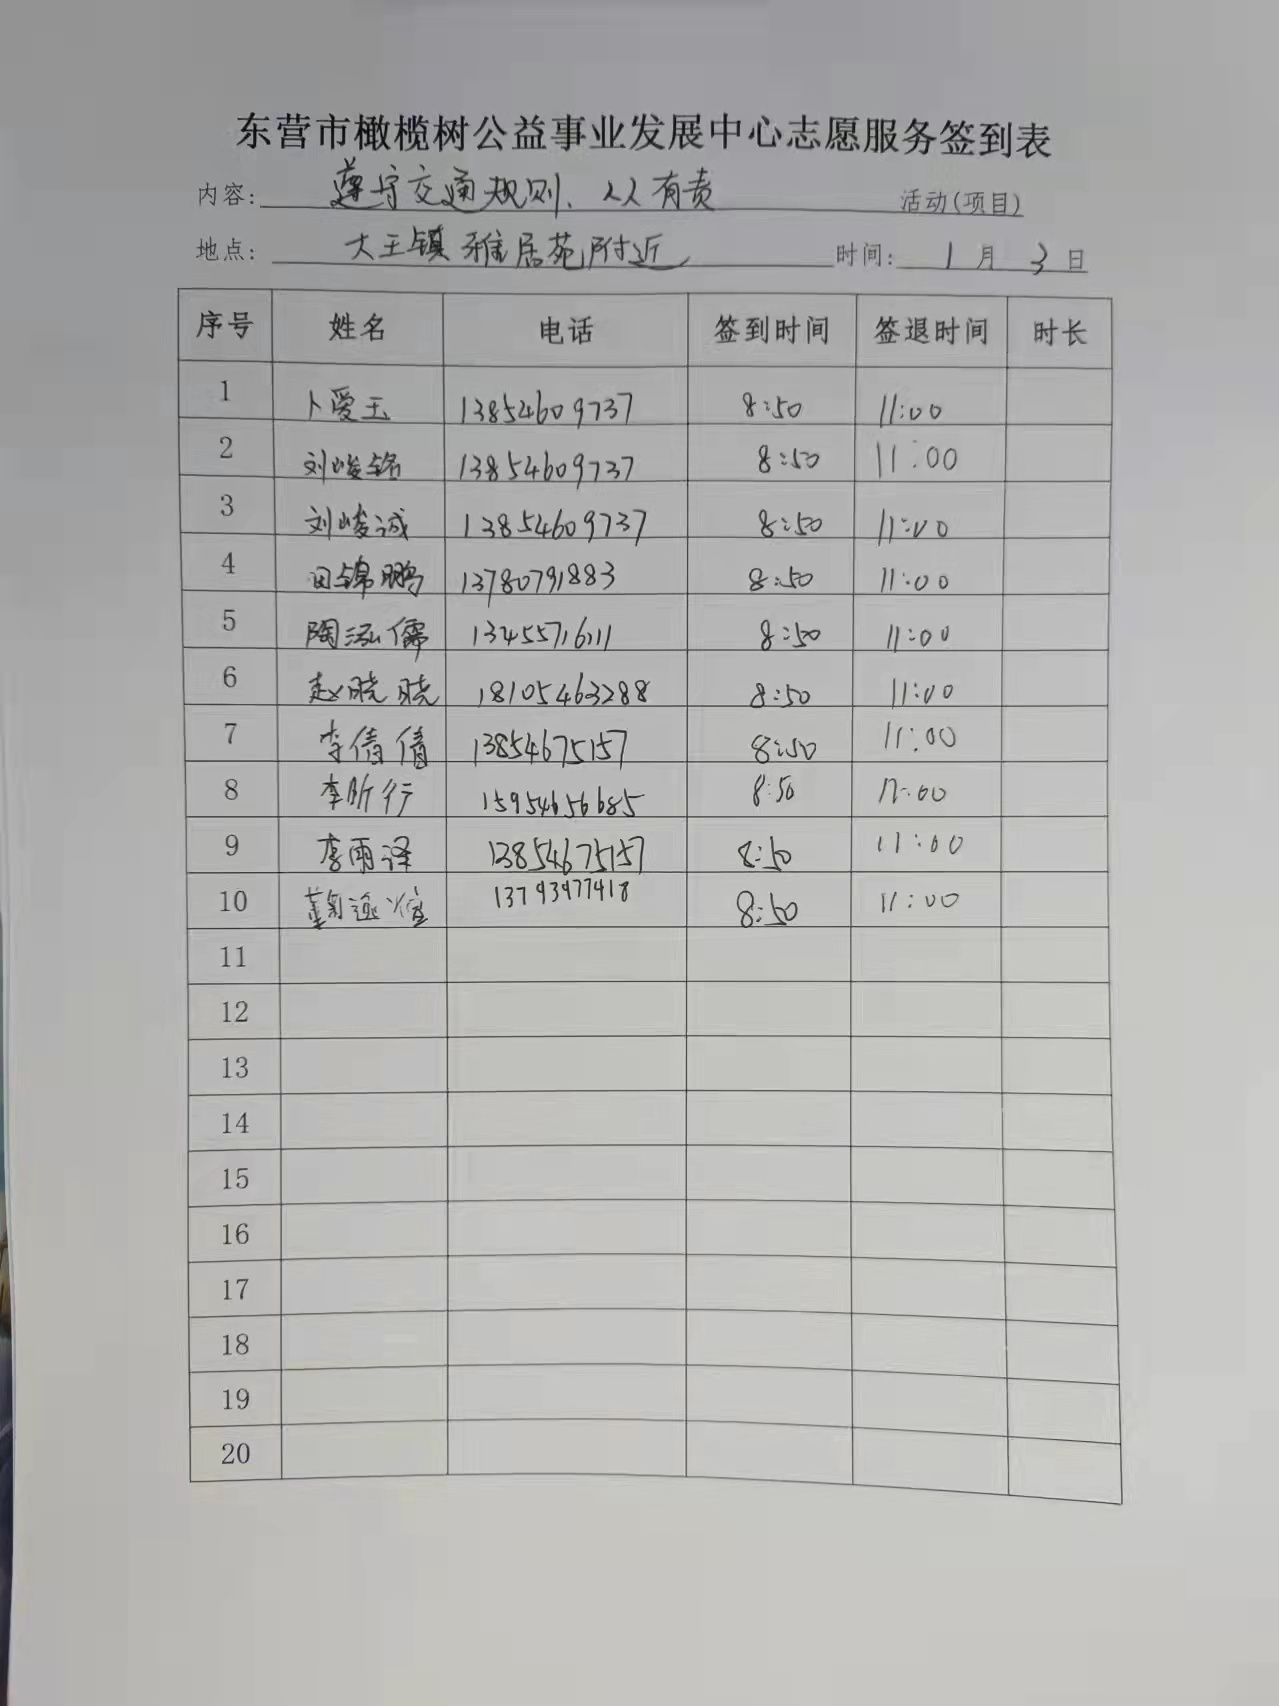 东营市橄榄树公益事业发展中心志愿服务签到表
内容: 遵守交通规则、人人有责 活动(项目)
地点: 大王镇雅居苑附近 时间: 1月3日
序号 姓名 电话 签到时间 签退时间 时长
1 卜爱玉 13854609737 8:50 11:00
2 刘峻铭 13854609737 8:50 11:00
3 刘峻诚 13854609737 8:50 11:00
4 田锦鹏 13780791883 8:50 11:00
5 陶泓儒 13455716111 8:50 11:00
6 赵晓晓 18105463288 8:50 11:00
7 李倩倩 13854675157 8:50 11:00
8 李昕行 15954656685 8:50 11:00
9 李雨泽 13854675157 8:50 11:00
10 13793977418 8:50 11:00
11
12
13
14
15
16
17
18
19
20